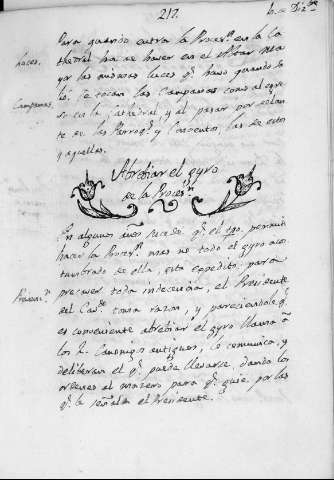 217.
Para quando entra la Proces.n en la Ca
thedral ha de haver en el Altar Ma
yor las mismas luces q.e havia quando sa
lió. Se tocan las Campanas como al egre
so en la Cathedral y al pasar por delan
te de las Parroq.s y Conventos, las de estos
y aquellas.
luces.
Campanas.
Abrebiar el gyro
de la Proces.n
En algunos años sucede q.e el tpo. permite
hacer la Proces.n mas no todo el gyro acos
tumbrado de ella, esta expedito; para
precaver toda indecencia, el Presidente
del Cav.do toma razon, y pareciendole q.e
es conveniente abrebiar el gyro llama à
los Canonigos antiguos, se comunica, y
deliberan el q.e puede llevarse, dando las
ordenes al macero para q.e guie, por las
q.e le señala el Presidente.